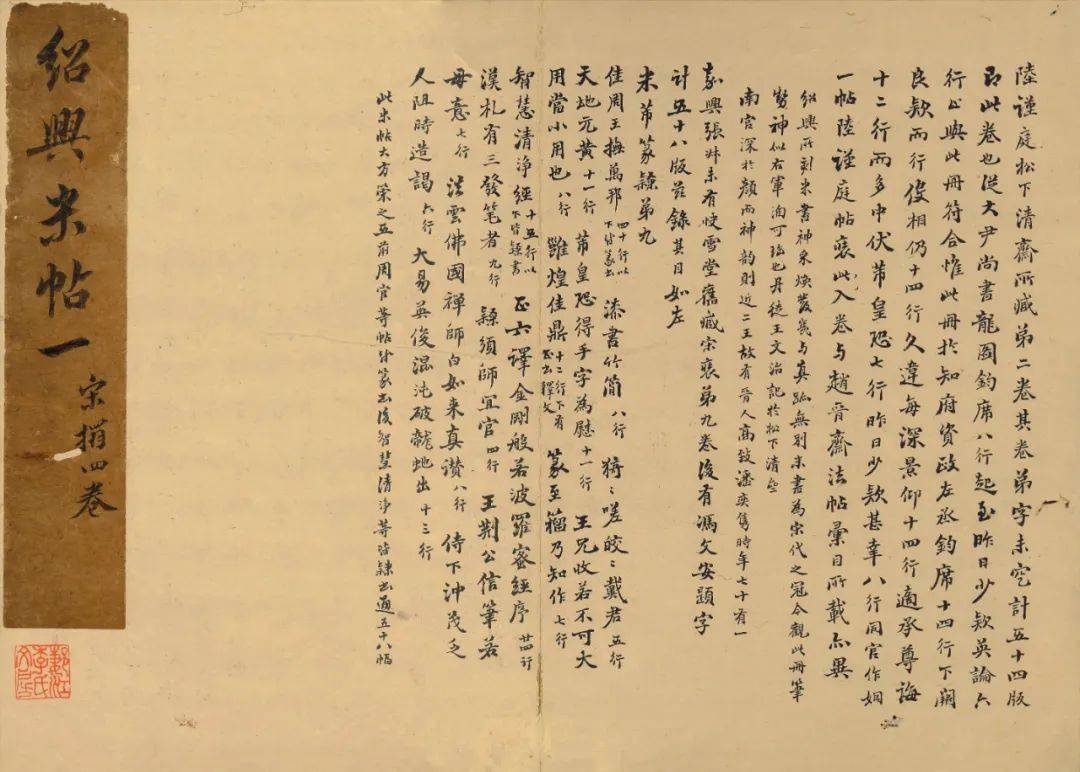 陸謹庭松下清齋所藏弟二卷其卷弟字未空計五十四版
即此卷也從大尹尚書龍圖鈞席八行起至昨日少欵英論六
行止與此冊符合惟此冊於知府資政左丞鈞席十四行下闕
良欵而行促相仍十四行久違每深景仰十四行適承尊誨
十二行而多中伏芾皇恐七行昨日少欵甚幸八行同官作姻
一帖陸謹庭帖褱此入卷与趙晉齋法帖彙目所載亦異
紹興所刻米書神采煥發幾与真跡無別米書為宋代之冠今觀此冊筆
勢神似右軍洵可珤也丹徒王文治記於松下清齋
南宮深於顏而神韵則近二王故有晉人高致潘奕雋時年七十有一
嘉興張叔未有快雪堂舊藏宋裹弟九卷後有馮文安題字
計五十八版茲錄其目如左
米芾篆隸弟九
佳周王撫萬邦 四十行以下皆篆書 漆書竹簡 八行 猗=嗟皎=戴君 五行
天地元黄 十一行 芾皇恐得手字為慰 十一行 王兄收若不可大
用當小用也 八行 雝煌佳鼎 十二行下有正書釋文 篆至籀乃知作 七行
智慧清浄經 十五行以下皆隸書 正六譯金剛般若波羅蜜經序 行
漢札有三發笔者 九行 隸須師宜官 四行 王荆公信筆若
毋意 七行 法雲佛國禪師白如来真讃 八行 侍下沖茂乏
人阻時造謁 六行 大易英俊混沌破龍虵出 十三行
此米帖大方策之五前周官等帖皆篆書後智慧清浄等皆隸書通五十八幅
紹興米帖一
宋搨四卷